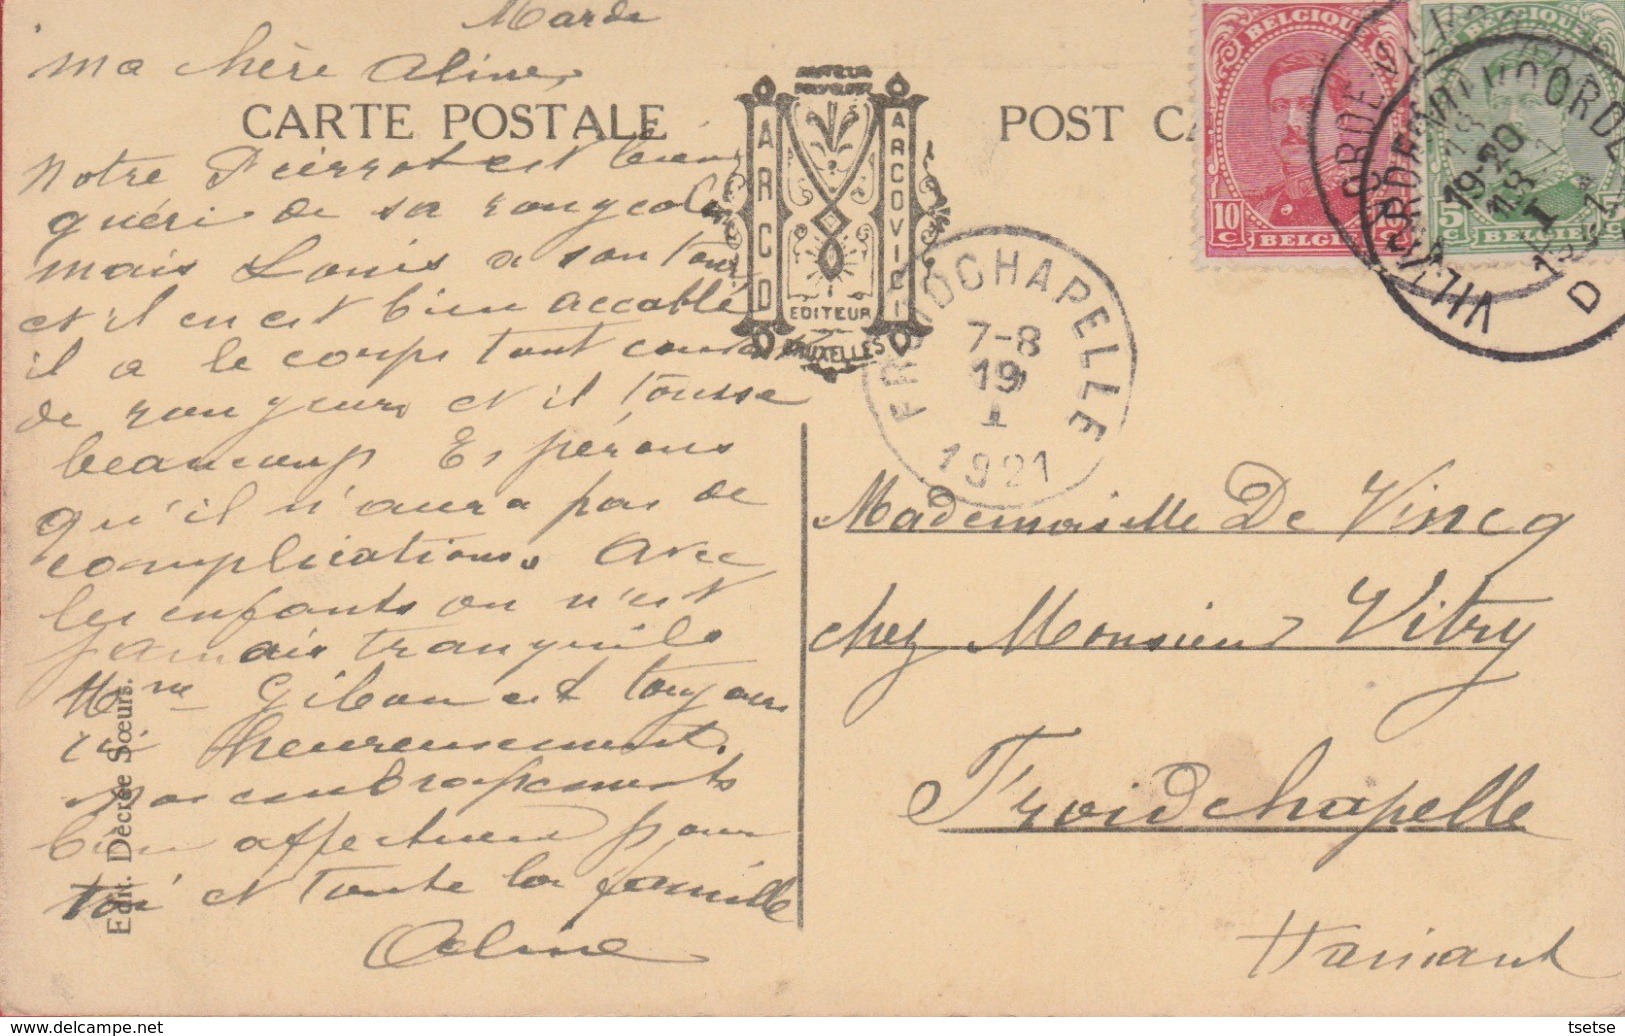 Mardi
Ma chère Aline,
CARTE POSTALE
POST CA
AMATEUR
POLYGLOTT
ARCO
ARCOVICI
EDITEUR
BRUXELLES
Notre Pierrot est bien
guéri de sa rougeole
mais Louis a son tour
et il en est bien accablé
il a le corps tout couvert
de rougeurs et il tousse
beaucoup Espérons
qu'il n'aura pas de
complications. Avec
les enfants on n'est
jamais tranquille
Mme Gibon est toujours
ici heureusement.
Nos embrassements
bien affectueux pour
toi et toute la famille
Aline
Edit. Décrée Sœurs.
BELGIQUE
10 C
BELGIË
BELGIQUE
5 C
BELGIË
VILVOORDE
19-20
18
I
D
VILVORDE
FROIDCHAPELLE
7-8
19
I
1921
Mademoiselle De Vincq
chez Monsieur Vitry
Froidchapelle
Hainaut
tsetse